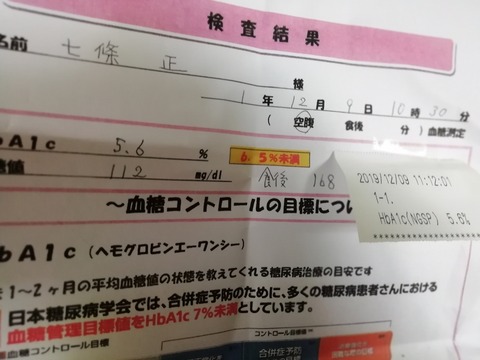 検査結果
名前 七條 正 様
1 年 12 月 9 日 10 時 30 分
( 空腹 食後 分 ) 血糖測定
bA1c 5.6 % 6.5%未満
糖値 112 mg/dl 食後 168
2019/12/09 11:12:01
1-1.
HbA1c(NGSP) 5.6%
～血糖コントロールの目標につい
bA1c (ヘモグロビンエーワンシー)
1～2ヶ月の平均血糖値の状態を教えてくれる糖尿病治療の目安です
日本糖尿病学会では、合併症予防のために、多くの糖尿病患者さんにおける
血糖管理目標値をHbA1c 7%未満としています。
血糖コントロール目標
コントロール目標
合併症予防